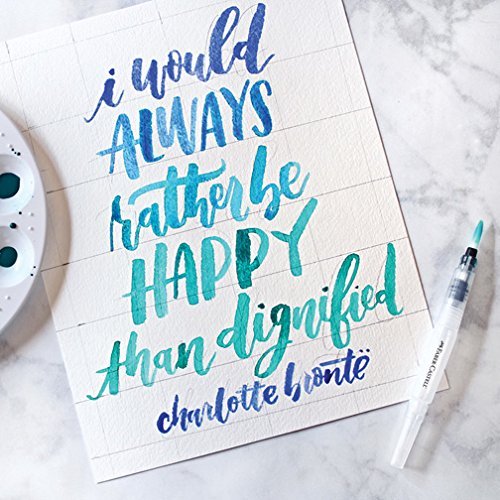 i would
ALWAYS
rather be
HAPPY
than dignified
charlotte brontë
FABER-CASTELL